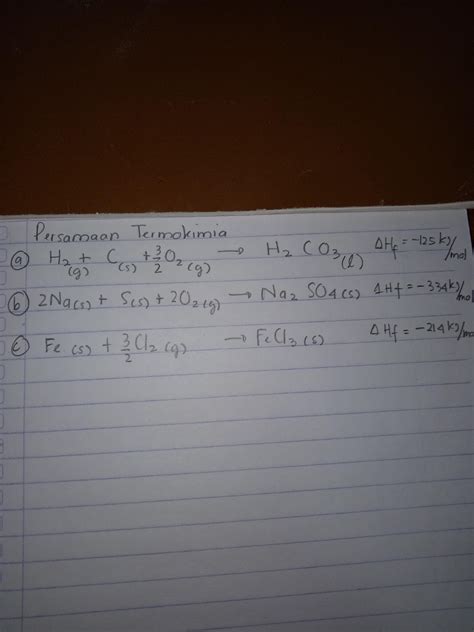 Persamaan Termokimia
(a) H2(g) + C(s) + 3/2 O2(g) → H2 CO3(l) ΔHf = -125 kJ/mol
(b) 2Na(s) + S(s) + 2O2(g) → Na2 SO4(s) ΔHf = -334 kJ/mol
(c) Fe(s) + 3/2 Cl2(g) → FeCl3(s) ΔHf = -214 kJ/mol